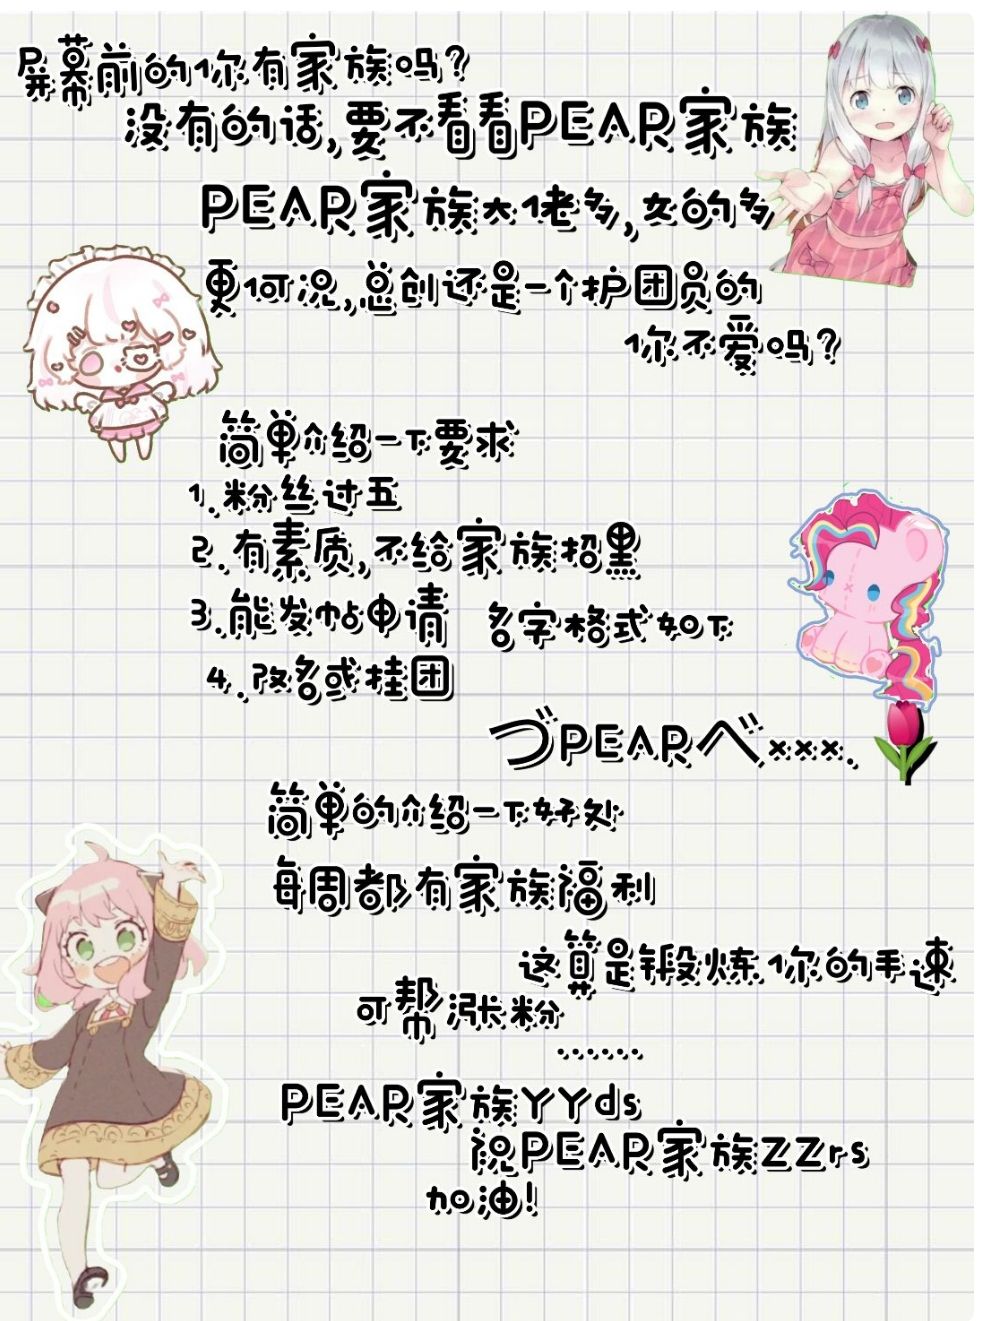 屏幕前的你有家族吗?
没有的话,要不看看PEAR家族
PEAR家族大佬多,女的多
更何况,总创还是一个护团员的
你不爱吗?
简单介绍一下要求
1.粉丝过五
2.有素质,不给家族招黑
3.能发帖申请 名字格式如下
4.改名或挂团
づPEARべ×××.
简单的介绍一下好处
每周都有家族福利
这算是锻炼你的手速
可帮涨粉
......
PEAR家族YYds
祝PEAR家族ZZrs
加油!